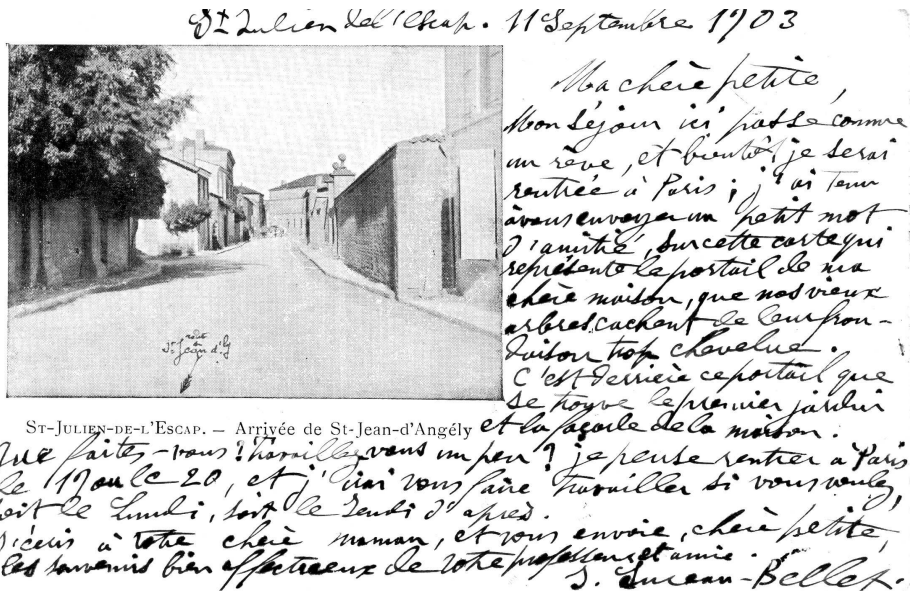 St Julien de l'Escap. 11 Septembre 1903
Ma chère petite,
Mon séjour ici passe comme
un rêve, et bientôt je serai
rentrée à Paris ; j'ai tenu
à vous envoyer un petit mot
d'amitié, sur cette carte qui
représente le portail de ma
chère maison, que nos vieux
arbres cachent de leur fron-
daison trop chevelue.
C'est derrière ce portail que
se trouve le premier jardin
et la façade de la maison.
route
St Jean d'Y
ST-JULIEN-DE-L'ESCAP. — Arrivée de St-Jean-d'Angély
Que faites-vous ? Travaillez vous un peu ? je pense rentrer à Paris
le 19 ou le 20, et j'irai vous faire travailler si vous voulez,
soit le Lundi, soit le Jeudi d'après.
J'écris à votre chère maman, et vous envoie, chère petite,
les souvenirs bien affectueux de votre professeur et amie.
J. Luceau-Bellet.